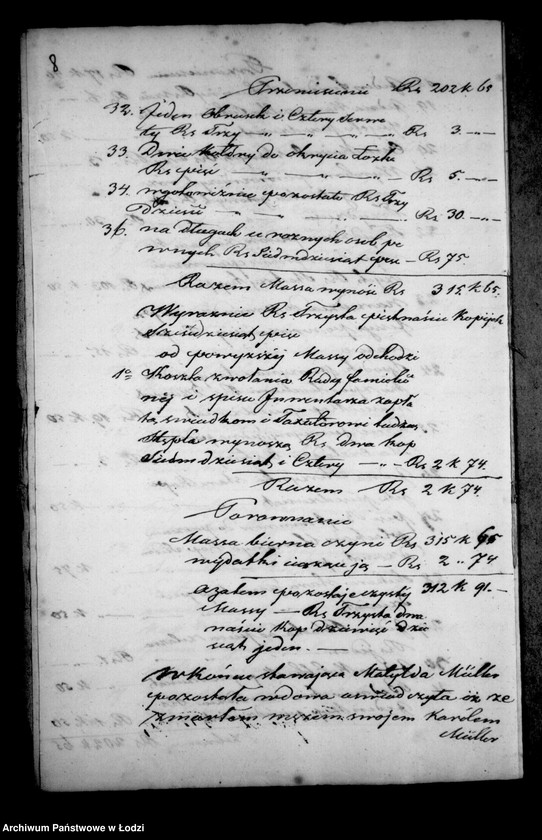 8
Przeniesienie Rs 202 k 65
32. Jeden Obrusek i Cztery Serwe
ty Rs Trzy — „ — „ — „ — Rs 3. — „ —
33. Dwie Kołdry do okrycia łożka
Rs pięc — „ — „ — „ — Rs 5. — „ —
34. w gotowiźnie pozostało Rs Trzy
dzieści — „ — „ — „ — Rs 30. — „ —
36. na długach u roznych osob pe
wnych Rs Siedmdziesiąt pięc — Rs 75.
Razem Massa wynosi Rs 315. k 65.
Wyraznie Rs Trzysta pietnaście Kopijek
Sześcdziesiąt pięc
od powyższej Massy odchodzi
1o Koszta zwołania Rady familij
nej i spisu Inwentarza zapła
ta, swiadkom i Taxatorowi tudzież
Stępla wynoszą Rs dwa kop
Siedmdziesiąt i Cztery — „ — Rs 2 k 74.
Razem Rs 2 k 74.
Porownanie
Massa bierna czyni Rs 315 k 65
wydatki — Rs 2 „ 74
azatem pozostaje czystej 312 k 91. —
Massy — Rs Trzysta dwa
naście Kop dziewięć dzie
siąt jeden. —
W Końcu stawająca Matylda Müller
pozostała wdowa oswiadczyła iż ze
zmarłem mężem swojem Karólem
Müller
Archiwum Państwowe w Łodzi